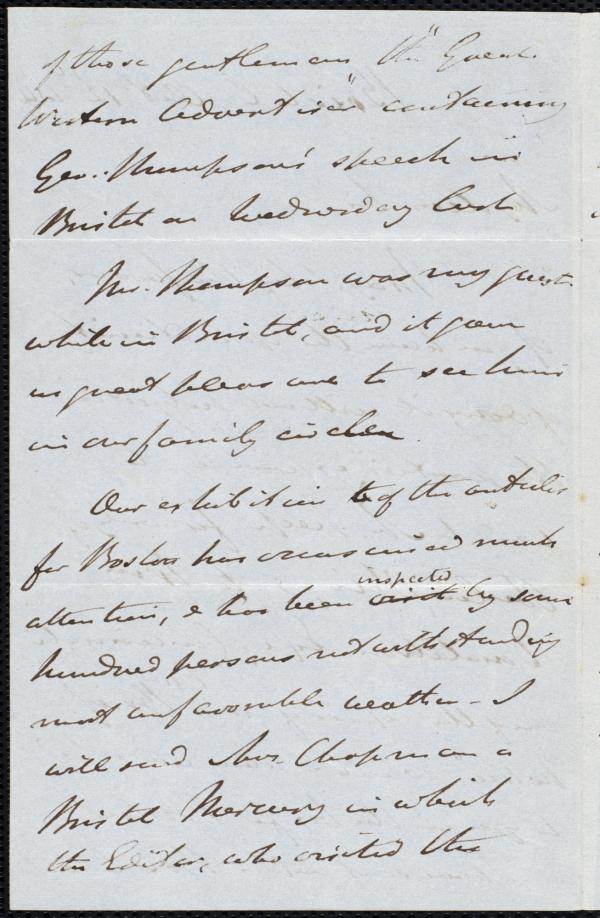 of those gentlemen the "Great
Western Advertiser" containing
Geo. Thompson's speech in
Bristol on Wednesday last
Mr. Thompson was my guest
while in Bristol, and it gave
us great pleasure to see him
in our family circle.
Our exhibition of the articles
for Boston has occasioned much
attention, & has been inspected by some
hundred persons notwithstanding
most unfavorable weather - I
will send Mrs. Chapman a
Bristol Mercury in which
the Editor, who visited the